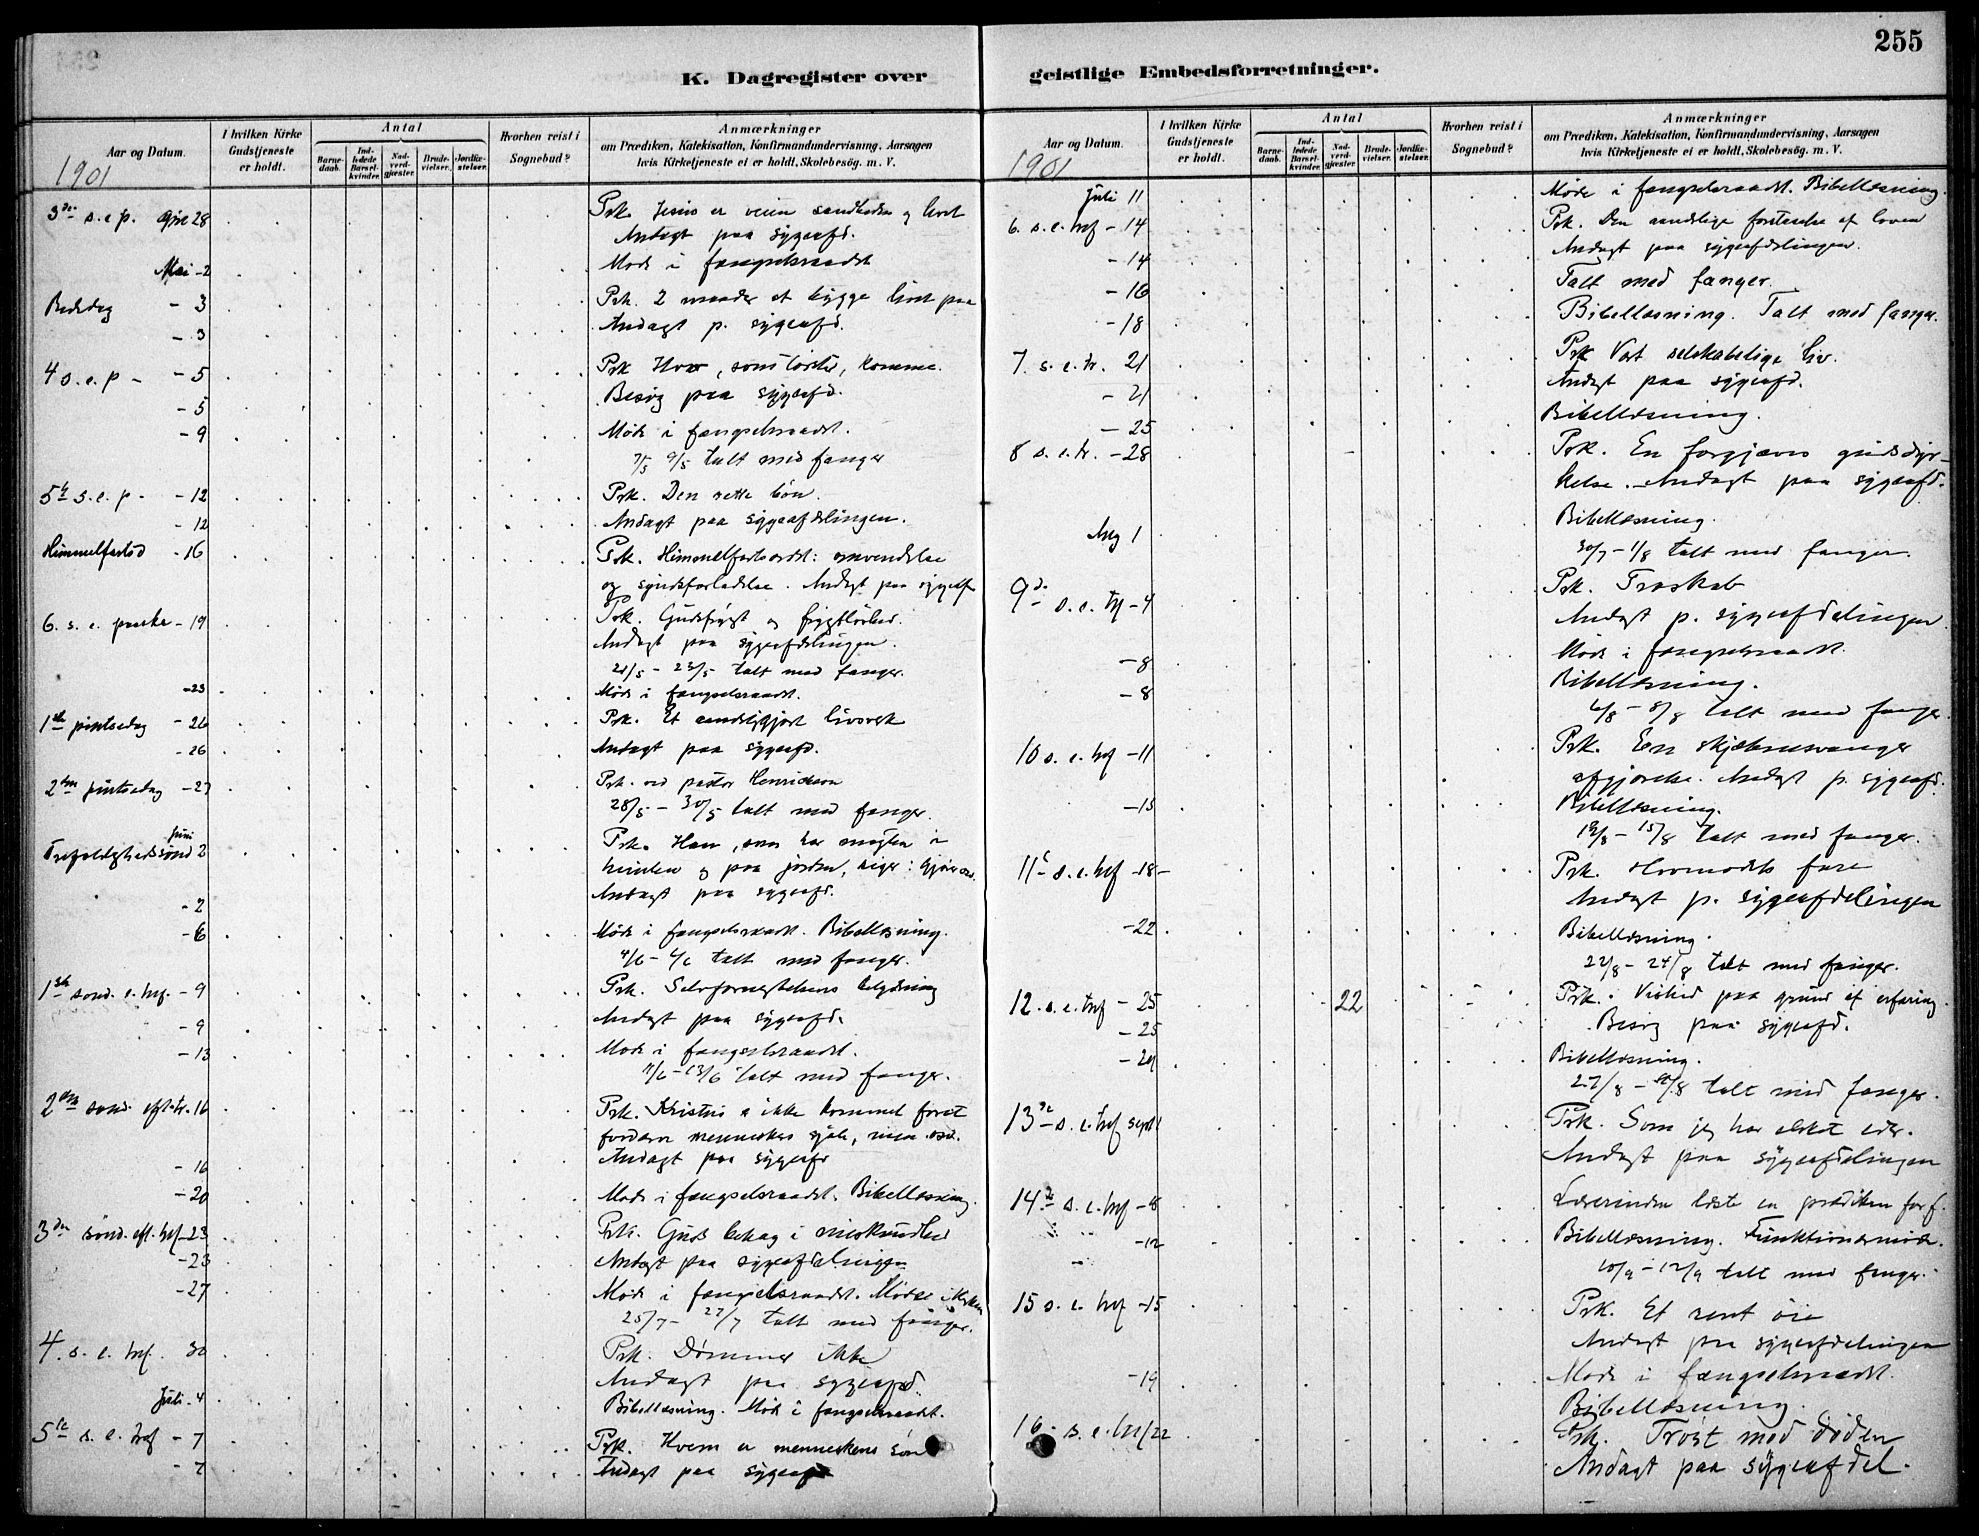 255
K. Dagregister over geistlige Embedsforretninger.
Aar og Datum.
I hvilken Kirke Gudstjeneste er holdt.
Antal
Barnedaab.
Indledede Barselkvinder.
Nadverdgjæster.
Brudevielser.
Jordfæstelser.
Hvorhen reist i Sognebud?
Anmærkninger
om Prædiken, Katekisation, Konfirmandundervisning, Aarsagen
hvis Kirketjeneste ei er holdt, Skolebesøg. m. V.
1901
3die s. e. p. April 28 Prk. Jesus er veien sandheden og livet
Andagt paa sygeafd.
Mai - 2 Møde i fængselsraadet
Bededag - 3 Prk. 2 maader at bygge livet paa
- 3 Andagt p. sygeafd.
4 s. e. p - - 5 Prk Hver, som tørster, komme.
- 5 Besøg paa sygeafd.
- 9 Møde i fængselsraadet.
7/5 9/5 talt med fanger
5te s. e. p - - 12 Prk. Den rette bøn.
- 12 Andagt paa sygeafdelingen.
Himmelfartsd - 16 Prk. Himmelfartsordet: omvendelse
og syndsforladelse. Andagt paa sygeafd
6. s. e. paaske - 19 Prk. Gudsfrygt og frygtløshed.
Andagt paa sygeafdelingen.
21/5 - 23/5 talt med fanger.
- 23 Møde i fængselsraadet.
1ste pintsedag - 26 Prk. Et aandeliggjort livsverk
- 26 Andagt paa sygeafd.
2den pintsedag - 27 Prk. ved pastor Henriksen
28/5 - 30/5 talt med fanger.
Trefoldighedssønd juni 2 Prk. Han, som har magten i
himlen og paa jorden, siger: Gjører osv.
- 2 Andagt paa sygeafd.
- 6 Møde i fængselsraadet. Bibellæsning.
4/6 - 6/6 talt med fanger.
1ste sønd. e. tref. - 9 Prk. Selvfornegtelsens betydning
- 9 Andagt paa sygeafd.
- 13 Møde i fængselsraadet.
11/6 - 13/6 talt med fanger.
2den sønd. eft. tr. 16 Prk. Kristus er ikke kommet foret
fordærve menneskers sjæle, men osv.
- 16 Andagt paa sygeafd
- 20 Møde i fængselsraadet. Bibellæsning.
3die sønd. eft. tref - 23 Prk. Guds behag i miskundhed
- 23 Andagt paa sygeafdelingen
- 27 Møde i fængselsraadet. Møde i
25/7 - 27/7 talt med fanger.
4. s. e. tref. 30 Prk. Dømmer ikke
Andagt paa sygeafd.
Juli - 4 Bibellæsning. Møde i fængselsraadet.
5te s. e. tref - 7 Prk. Hvem er menneskens søn
- 7 Andagt paa sygeafd
Aar og Datum.
I hvilken Kirke Gudstjeneste er holdt.
Antal
Barnedaab.
Indledede Barselkvinder.
Nadverdgjæster.
Brudevielser.
Jordfæstelser.
Hvorhen reist i Sognebud?
Anmærkninger
om Prædiken, Katekisation, Konfirmandundervisning, Aarsagen
hvis Kirketjeneste ei er holdt, Skolebesøg. m. V.
1901
Juli 11 Møde i fængselsraadet. Bibellæsning.
6. s. e. tref - 14 Prk. Den aandelige forstaaelse af loven
- 14 Andagt paa sygeafdelingen.
- 16 Talt med fanger.
- 18 Bibellæsning. Talt med fanger.
7. s. e. tr. 21 Prk Vort selskabelige liv.
- 21 Andagt paa sygeafd.
- 25 Bibellæsning.
8 s. e. tr. - 28 Prk. En forgjæves gudsdyr-
kelse. Andagt paa sygeafd.
Aug 1 Bibellæsning.
30/7 - 1/8 talt med fanger.
9de s. e. trf - 4 Prk. Troskab
Andagt p. sygeafdelingen.
- 8 Møde i fængselsraadet.
- 8 Bibellæsning.
6/8 - 8/8 talt med fanger.
10 s. e. tref - 11 Prk. En skjæbnesvanger
afgjørelse. Andagt p. sygeafd.
- 15 Bibellæsning.
13/8 - 15/8 talt med fanger.
11te s. e. tref - 18 - Prk. Hovmodets fare
Andagt p. sygeafdelingen
- 22 Bibellæsning.
22/8 - 24/8 talt med fanger.
12. s. e. tref - 25 22 Prk. Vished paa grund af erfaring.
- 25 Besøg paa sygeafd.
- 29 Bibellæsning.
27/8 - 29/8 talt med fanger.
13de s. e. tref sept 1 Prk. Som jeg har elsket eder.
Andagt paa sygeafdelingen
14de s. e. tref - 8 Lærerinden læste en prædiken for f.
- 12 Bibellæsning. Funktionærmøde.
10/9 - 12/9 talt med fanger.
15 s. e. tref - 15 Prk. Et rent øie
Andagt paa sygeafdelingen
- 19 Møde i fængselsraadet.
Bibellæsning.
16 - s. e. tref 22 Prk. Trøst mod døden
Andagt paa sygeafdel.